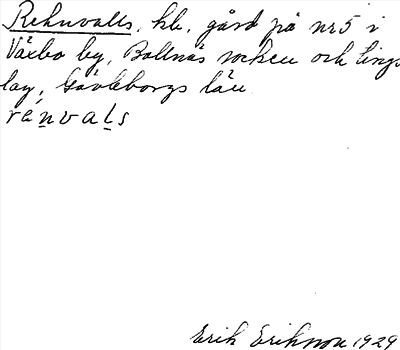 Rehnvalls, hb., gård på nr 5 i
Växbo by, Bollnäs socken och tings
lag, Gävleborgs län
rénvals
Erik Erikson 1929